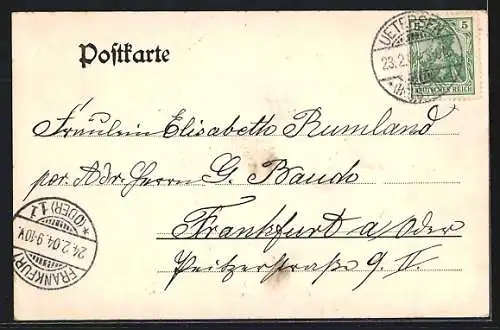 Postkarte
UETERSEN
23.2.
5
DEUTSCHES REICH
Fräulein Elisabeth Rumland
per. Adr. Herrn G. Baudo
Frankfurt a/Oder
9. II.
FRANKFURT
(ODER) 1.z
24.2.04.9-10V.